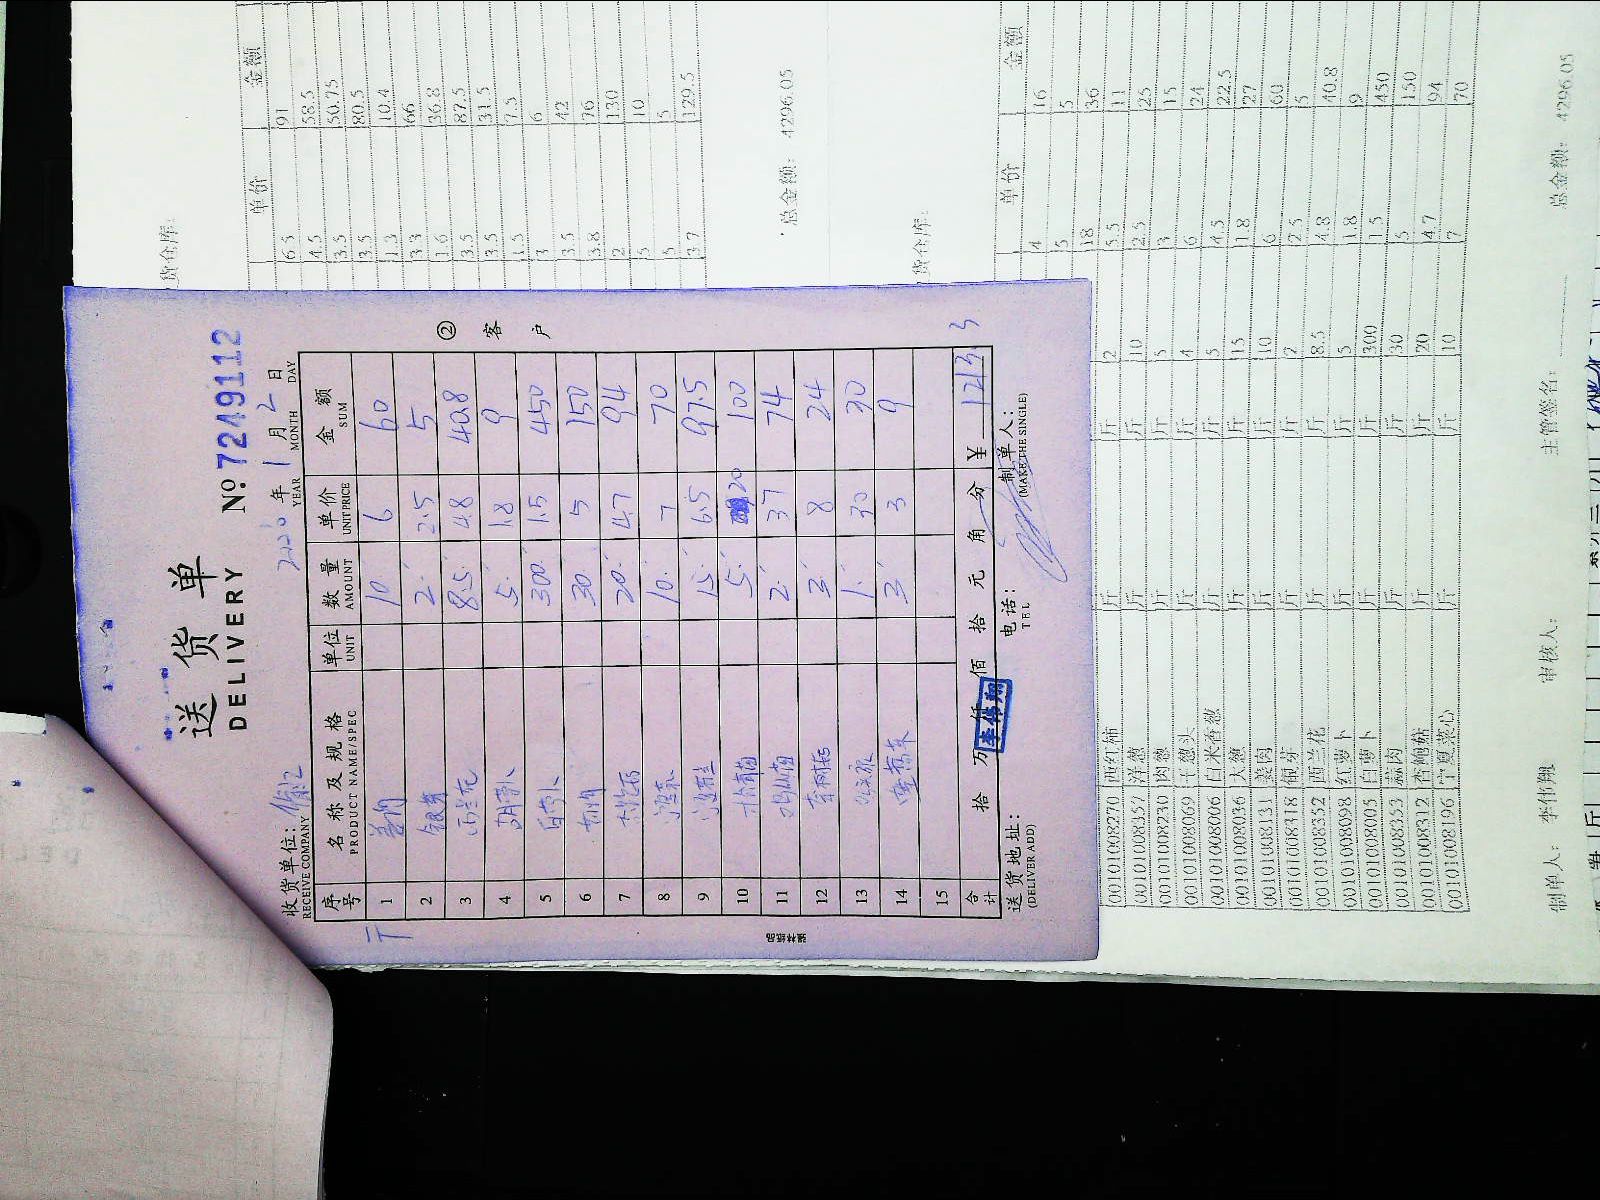 送货单
DELIVERY
№ 7249112
2020年 1月 2日
YEAR MONTH DAY
收货单位:
RECEIVE COMPANY
序号 名称及规格 单位 数量 单价 金额
PRODUCT NAME/SPEC UNIT AMOUNT UNIT PRICE SUM
1 姜肉 10 6 60
2 银芽 2 2.5 5
3 西兰花 8.5 4.8 40.8
4 胡萝卜 5 1.8 9
5 白萝卜 300 1.5 450
6 30 5 150
7 20 4.7 94
8 10 7 70
9 15 6.5 97.5
10 5 20 100
11 2 37 74
12 3 8 24
13 1 30 30
14 3 3 9
15
合计 拾 万 仟 佰 拾 元 角 分 ¥ 1213.3
李伟翔
送货地址:
(DELIVER ADD)
电话:
TEL
制单人:
(MAKE THE SINGLE)
② 客户
货仓库:
单价 金额
6.5 91
4.5 58.5
3.5 50.75
3.5 80.5
1.3 10.4
3.3 66
1.6 36.8
3.5 87.5
3.5 31.5
1.5 7.5
3 6
3.5 42
3.8 76
2 130
5 10
5 5
3.7 129.5
总金额: 4296.05
货仓库:
单价 金额
4 16
5 5
18 36
00101008270 西红柿 斤 斤 2 5.5 11
00101008357 洋葱 斤 斤 10 2.5 25
00101008230 肉葱 斤 斤 5 3 15
00101008069 干葱头 斤 斤 4 6 24
00101008006 白米香葱 斤 斤 5 4.5 22.5
00101008036 大葱 斤 斤 15 1.8 27
00101008131 姜肉 斤 斤 10 6 60
00101008318 银芽 斤 斤 2 2.5 5
00101008352 西兰花 斤 斤 8.5 4.8 40.8
00101008098 红萝卜 斤 斤 5 1.8 9
00101008005 白萝卜 斤 斤 300 1.5 450
00101008353 蒜肉 斤 斤 30 5 150
00101008312 杏鲍菇 斤 斤 20 4.7 94
00101008196 宁夏菜心 斤 斤 10 7 70
制单人: 李伟翔 审核人: 主管签名: 总金额: 4296.05